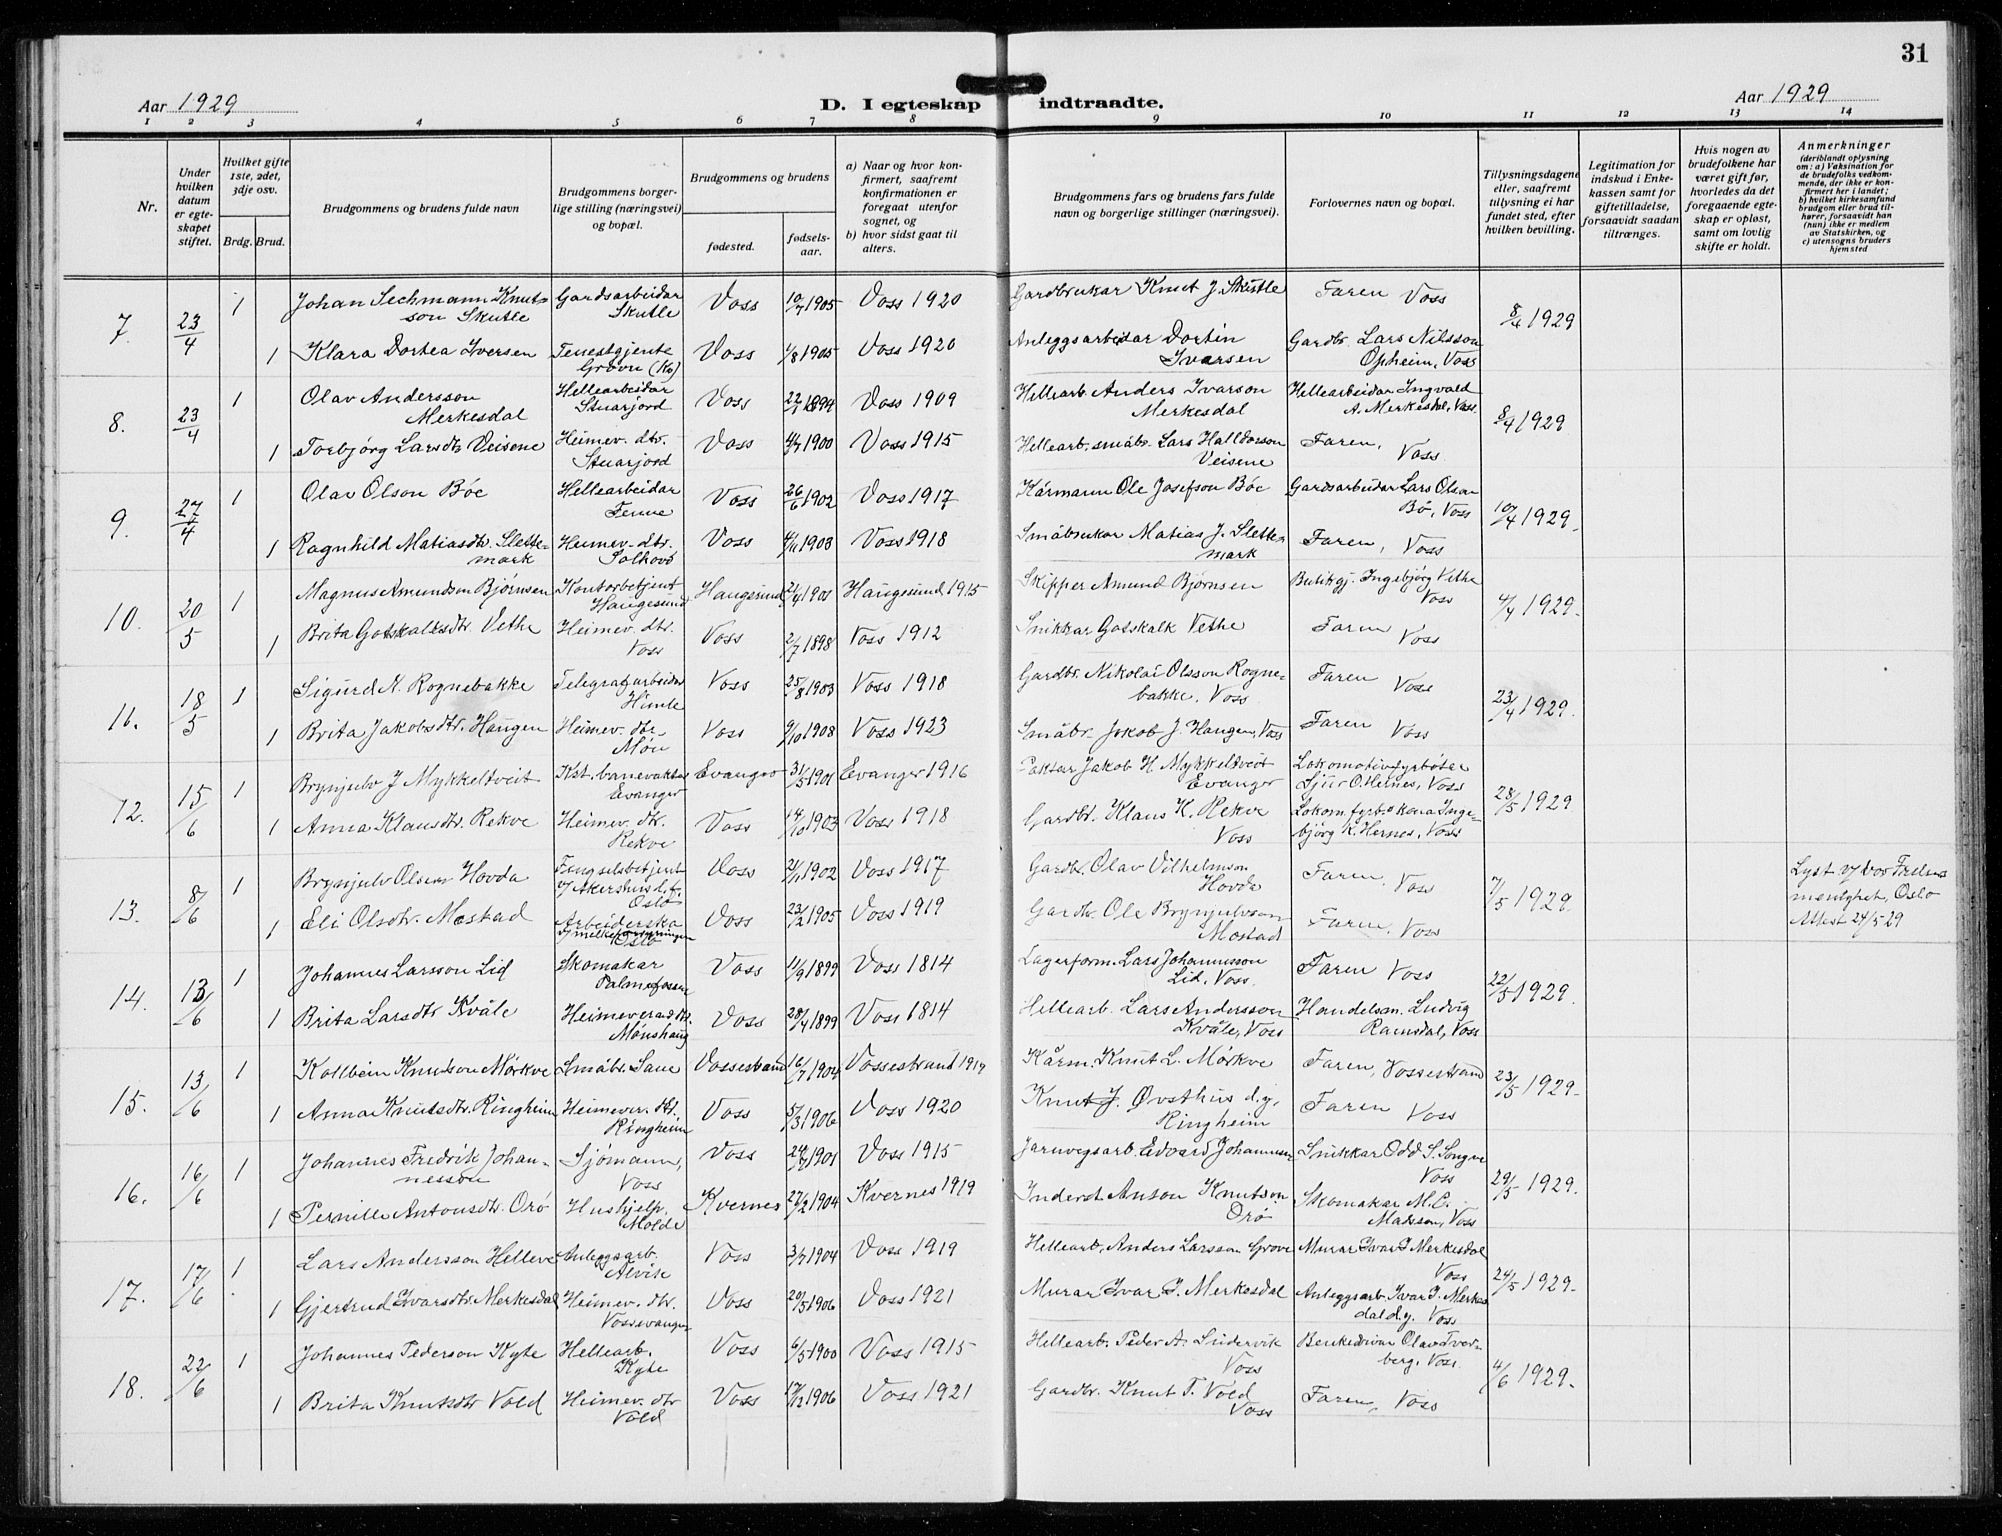 31
Aar 1929
D. I egteskap indtraadte.
Aar 1929
1 2 3 4 5 6 7 8 9 10 11 12 13 14
Nr.
Under hvilken datum er egteskapet stiftet.
Hvilket gifte 1ste, 2det, 3dje osv.
Brdg. Brud.
Brudgommens og brudens fulde navn
Brudgommens borgerlige stilling (næringsvei) og bopæl.
Brudgommens og brudens
fødested.
fødselsaar.
a) Naar og hvor konfirmert, saafremt konfirmationen er foregaat utenfor sognet, og
b) hvor sidst gaat til alters.
Brudgommens fars og brudens fars fulde navn og borgerlige stillinger (næringsvei).
Forlovernes navn og bopæl.
Tillysningsdagene eller, saafremt tillysning ei har fundet sted, efter hvilken bevilling.
Legitimation for indskud i Enkekassen samt for giftetilladelse, forsaavidt saadan tiltrænges.
Hvis nogen av brudefolkene har været gift før, hvorledes da det foregaaende egteskap er opløst, samt om lovlig skifte er holdt.
Anmerkninger
(deriblandt oplysning om: a) Vaksination for de brudefolks vedkommende, der ikke er konfirmert her i landet; b) hvilket kirkesamfund brudgom eller brud tilhører, forsaavidt han (hun) ikke er medlem av Statskirken, og c) utensogns bruders hjemsted
7. 23/4 1 Johan Sechmann Knutsson Skutle Gardsarbeidar Skutle Voss 10/7 1905 Voss 1920 Gardbrukar Knut J. Skutle Faren Voss 8/4 1929
1 Klara Dortea Iversen Tenestgjente Grovu (Ko) Voss 1/8 1905 Voss 1920 Anleggsarbeidar Dortin Ivarsen Gardbr. Lars Nilsson Opheim, Voss
8. 23/4 1 Olav Andersson Merkesdal Hellearbeidar Stuarjord Voss 22/1 1894 Voss 1909 Hellearb. Anders Ivarson Merkesdal Hellearbeidar Ingvald A. Merkesdal, Voss 8/4 1929
1 Torbjørg Larsdtr Veisene Heimev. dtr. Stuarjord Voss 4/7 1900 Voss 1915 Hellearb. småbr. Lars Halldorson Veisene Faren, Voss
9. 27/4 1 Olav Olson Bøe Hellearbeidar Tenne Voss 26/6 1902 Voss 1917 Kårmann Ole Josefson Bøe Gardsarbeidar Lars Olson Bø, Voss 10/4 1929.
1 Ragnhild Matiasdtr. Slettemark Heimev. dtr. Palhovs Voss 4/11 1903 Voss 1918 Småbrukar Matias J. Slettemark Faren, Voss
10. 20/5 1 Magnus Amundson Bjørnsen Kontorbetjent Haugesund Haugesund 21/4 1901 Haugesund 1915 Skipper Amund Bjørnsen Butikgj. Ingebjørg Vethe Voss 4/4 1929.
1 Brita Gotskalksdtr. Vethe Heimev. dtr. Voss Voss 2/7 1898 Voss 1912 Snikkar Gotskalk Vethe Faren Voss
11. 18/5 1 Sigurd N. Rognebakke Telegrafarbeidar Himle Voss 25/8 1903 Voss 1918 Gardbr. Nikolai Olsson Rognebakke, Voss Faren Voss 23/4 1929.
1 Brita Jakobsdtr. Haugen Heimev. dtr. Møn Voss 9/10 1908 Voss 1923 Småbr. Jakob J. Haugen, Voss Faren Voss
12. 15/6 1 Brynjulv J Mykkeltveit Kst. banevaktar Evanger Evanger 31/5 1901 Evanger 1916 Paktar Jakob H Mykkeltveit Evanger Lokomotivfyrbøtar Sjur O. Hernes, Voss 28/5 1929
1 Anna Klausdtr. Rekve Heimev. dtr. Rekve Voss 14/10 1903 Voss 1918 Gardbr. Klaus K. Rekve Voss Lokom.fyrb. kona Ingebjørg K. Hernes, Voss
13. 8/6 1 Brynjulv Olsen Hovda Fengselsbetjent v/ Akershus l.f. Oslo Voss 2/11 1902 Voss 1917 Gardbr. Olav Vilhelmson Hovda Faren, Voss 7/5 1929. Lyst v/ vor Frelsers menighet, Oslo Attest 24/5 29
1 Eli Olsdtr. Mostad Arbeiderska v/ melkeforsyningen Oslo Voss 23/2 1905 Voss 1919 Gardbr. Ole Brynjulvson Mostad Faren, Voss
14. 13/6 1 Johannes Larsson Lid Skomakar Palmefossen Voss 11/9 1899 Voss 1814 Lagerform. Lars Johannesson Lid, Voss Faren Voss 22/5 1929.
1 Brita Larsdtr Kvåle Heimeverande dtr. Mønshaug Voss 28/4 1899 Voss 1814 Hellearb. Lars Andersson Kvåle, Voss Handelsm. Ludvig Ramsdal, Voss
15. 13/6 1 Kollbein Knutson Mørkve Småbr. Saue Vossestrand 16/7 1904 Vossestrand 1919 Kårm. Knut L. Mørkve Faren, Vossestrand 23/5 1929.
1 Anna Knutsdtr. Ringheim Heimever. dtr. Ringheim Voss 5/3 1906 Voss 1920 Knut J. Øvsthus d.y. Ringheim Faren Voss
16. 16/6 1 Johannes Fredrik Johannesson Sjømann, Voss Voss 24/7 1901 Voss 1915 Jarnvegsarb. Edvard Johannesen Snikkar Odd S. Songve Voss 29/5 1929.
1 Pernille Antonsdtr. Orø Hushjelp, Molde Kvernes 27/2 1904 Kvernes 1919 Inderst Anton Knutson Orø Skomakar M. C. Madsson, Voss
17. 17/6 1 Lars Andersson Helleve Anleggsarb. Alvik Voss 3/7 1904 Voss 1919 Hellearb. Anders Larsson Grove Murar Ivar I Merkesdal Voss 24/5 1929.
1 Gjertrud Ivarsdtr. Merkesdal Heimev. dtr. Vossevangen Voss 20/5 1906 Voss 1921 Murar Ivar I. Merkesdal Anleggsarb. Ivar I. Merkesdal d.y. Voss
18. 22/6 1 Johannes Pederson Kyte Hellearb. Kyte Voss 6/5 1900 Voss 1915 Hellearb. Peder A. Sudervik Voss Benkedrivar Olav Tvedberg, Voss 4/6 1929.
1 Brita Knutsdtr Vold Heimev. dtr Vold Voss 17/12 1906 Voss 1921 Gardbr. Knut T. Vold Voss Faren, Voss